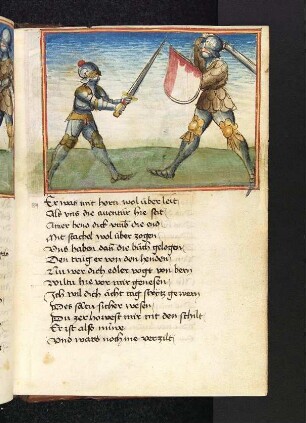 Er was mit horn wol über leit
Als vns die auentür hie seit
Aller hend dick vnd die end
Mit stachel wol über zogen
Vns haben dan die buch gelogen
Den trug er von den henden
Nu wer dich edler vogt von bern
Wiltu hie vor mir genesen
Ich wil dich acht tag strytz gewern
Des saltu sicher wesen
Du zerhowest mir nit den schilt
Er ist also nüwe
Vnd ward noch nie verzilt